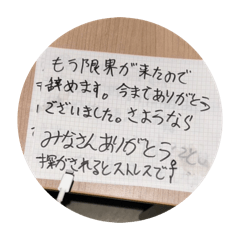 もう限界が来たので
辞めます。今までありがとう
ございました。さようなら
みなさんありがとう。
探がされるとストレスです